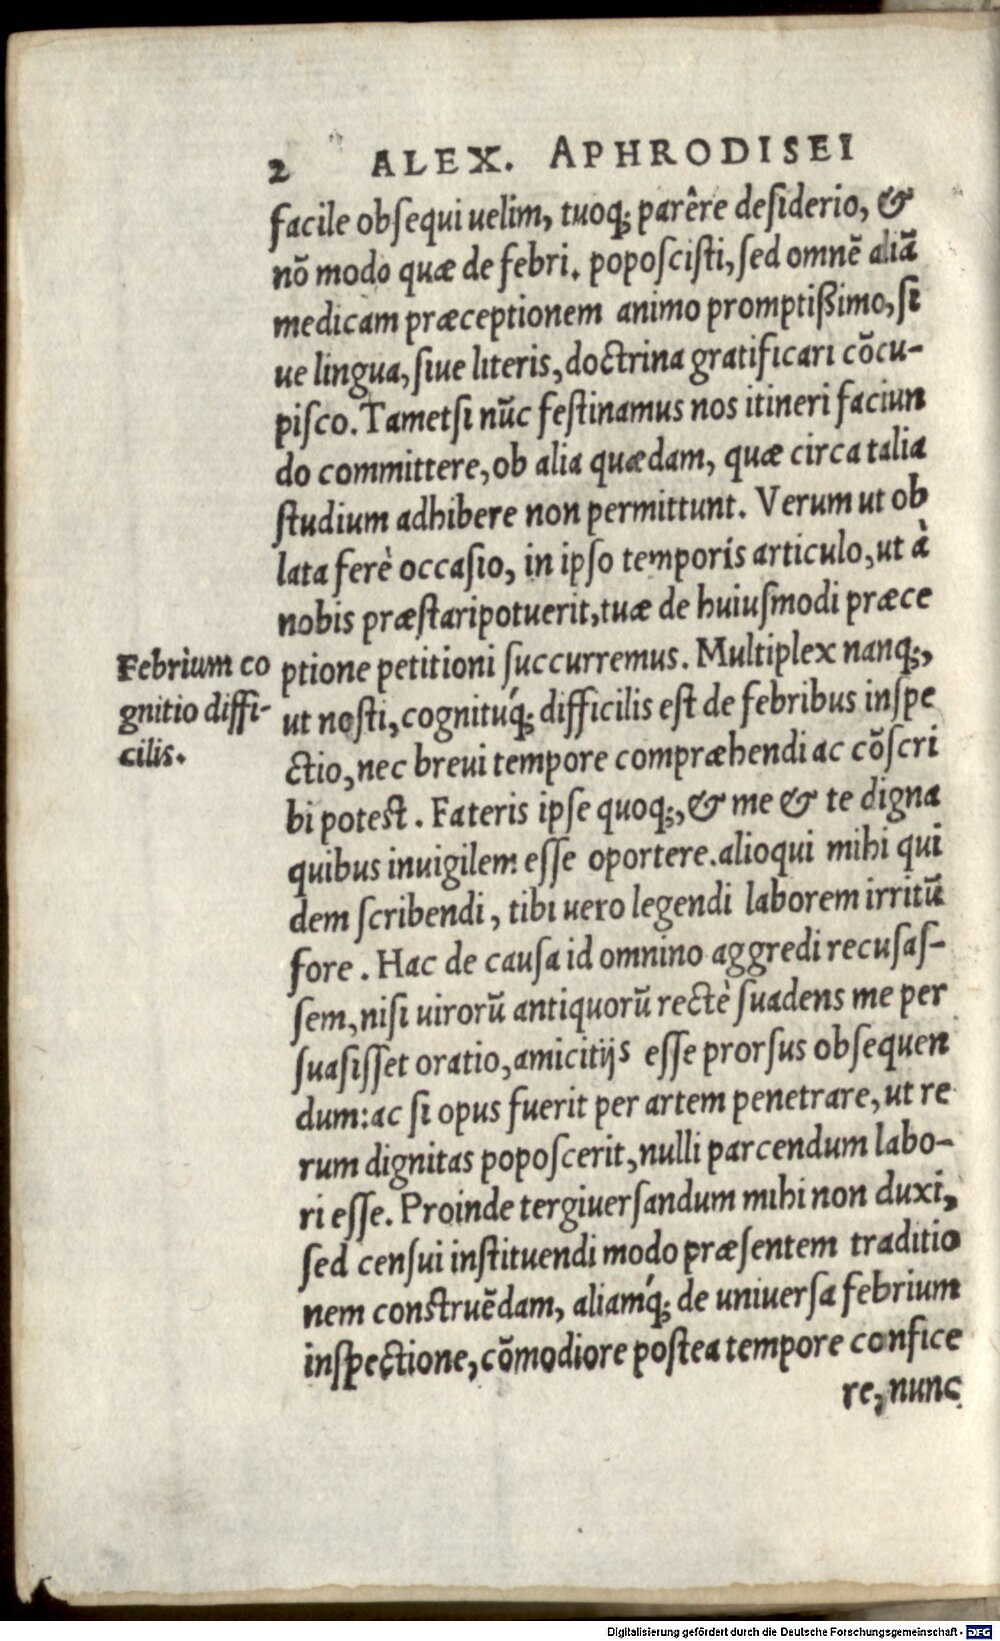 2 ALEX. APHRODISEI
facile obſequi uelim, tuoq; parêre deſiderio, &
nō modo quæ de febri. popoſciſti, ſed omnē aliā
medicam præceptionem animo promptißimo, ſi
ue lingua, ſiue literis, doctrina gratificari cōcu-
piſco. Tametſi nūc feſtinamus nos itineri faciun
do committere, ob alia quædam, quæ circa talia
ſtudium adhibere non permittunt. Verum ut ob
lata ferè occaſio, in ipſo temporis articulo, ut à
nobis præſtari potuerit, tuæ de huiuſmodi præce
Febrium co
gnitio diffi-
cilis.
ptione petitioni ſuccurremus. Multiplex nanq;,
ut noſti, cognitúq; difficilis eſt de febribus inſpe
ctio, nec breui tempore compræhendi ac cōſcri
bi poteſt. Fateris ipſe quoq;, & me & te digna
quibus inuigilem eſſe oportere. alioqui mihi qui
dem ſcribendi, tibi uero legendi laborem irritū
fore. Hac de cauſa id omnino aggredi recuſaſ-
ſem, niſi uirorū antiquorū rectè ſuadens me per
ſuaſiſſet oratio, amicitijs eſſe prorſus obſequen
dum: ac ſi opus fuerit per artem penetrare, ut re
rum dignitas popoſcerit, nulli parcendum labo-
ri eſſe. Proinde tergiuerſandum mihi non duxi,
ſed cenſui inſtituendi modo præſentem traditio
nem conſtruēdam, aliamq́; de uniuerſa febrium
inſpectione, cōmodiore poſtea tempore confice
re, nunc
Digitalisierung gefördert durch die Deutsche Forschungsgemeinschaft - DFG